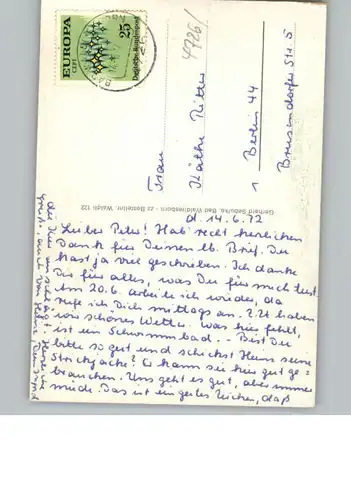 EUROPA
CEPT
25
Deutsche Bundespost
4426/
Frau
Käthe Ritter
1 Berlin 44
Brusendorfer Str. 5
Gerhard Sebulka, Bad Waldliesborn - zz Bestellnr. Waldli 122
d. 14.6.72
Liebes Peterl! Hab recht herzlichen
Dank für Deinen lb. Brief. Du
hast ja viel geschrieben. Ich danke
Dir für alles, was Du für mich tust.
Am 20.6. arbeite ich wieder, da
rufe ich Dich mittags an. Z.Zt. haben
wir schönes Wetter. Was hier fehlt,
ist ein Schwimmbad. - Bist Du
bitte so gut und schickst Heinz seine
Strickjacke? Er kann sie hier gut ge=
brauchen. Uns geht es gut, aber immer
müde. Das ist ein gutes Zeichen, daß
die Kur anschlägt. Herzliche
Grüße, auch von Heinz, Deine